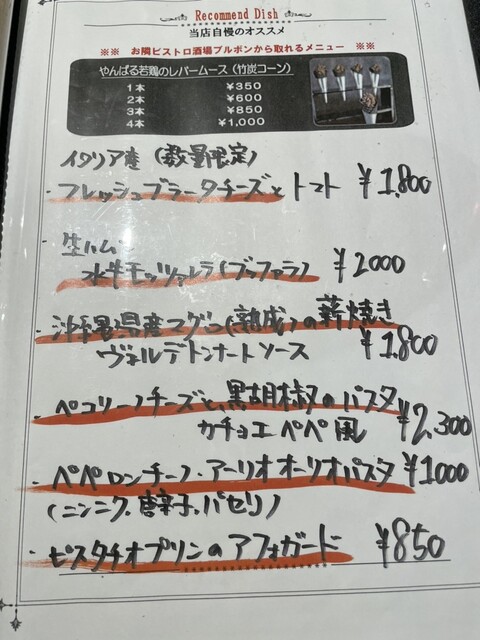 Recommend Dish
当店自慢のオススメ
※※ お隣ビストロ酒場ブルボンから取れるメニュー ※※
やんばる若鶏のレバームース（竹炭コーン）
1本 ¥350
2本 ¥600
3本 ¥850
4本 ¥1,000
イタリア産（数量限定）
・フレッシュブラータチーズとトマト ¥1,800
生ハム
水牛モッツァレラ（ブッファラ） ¥2000
・沖縄県産マグロ（熟成）の薪焼き
ヴェルデトンナートソース ¥1,800
・ペコリーノチーズと黒胡椒のパスタ
カチョエペペ風 ¥2,300
・ペペロンチーノ・アーリオオーリオパスタ ¥1000
（ニンニク、唐辛子、パセリ）
・ピスタチオプリンのアフォガード ¥850